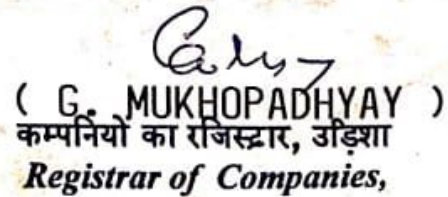 ( G. MUKHOPADHYAY )
कम्पनियों का रजिस्ट्रार, उड़िशा
Registrar of Companies,